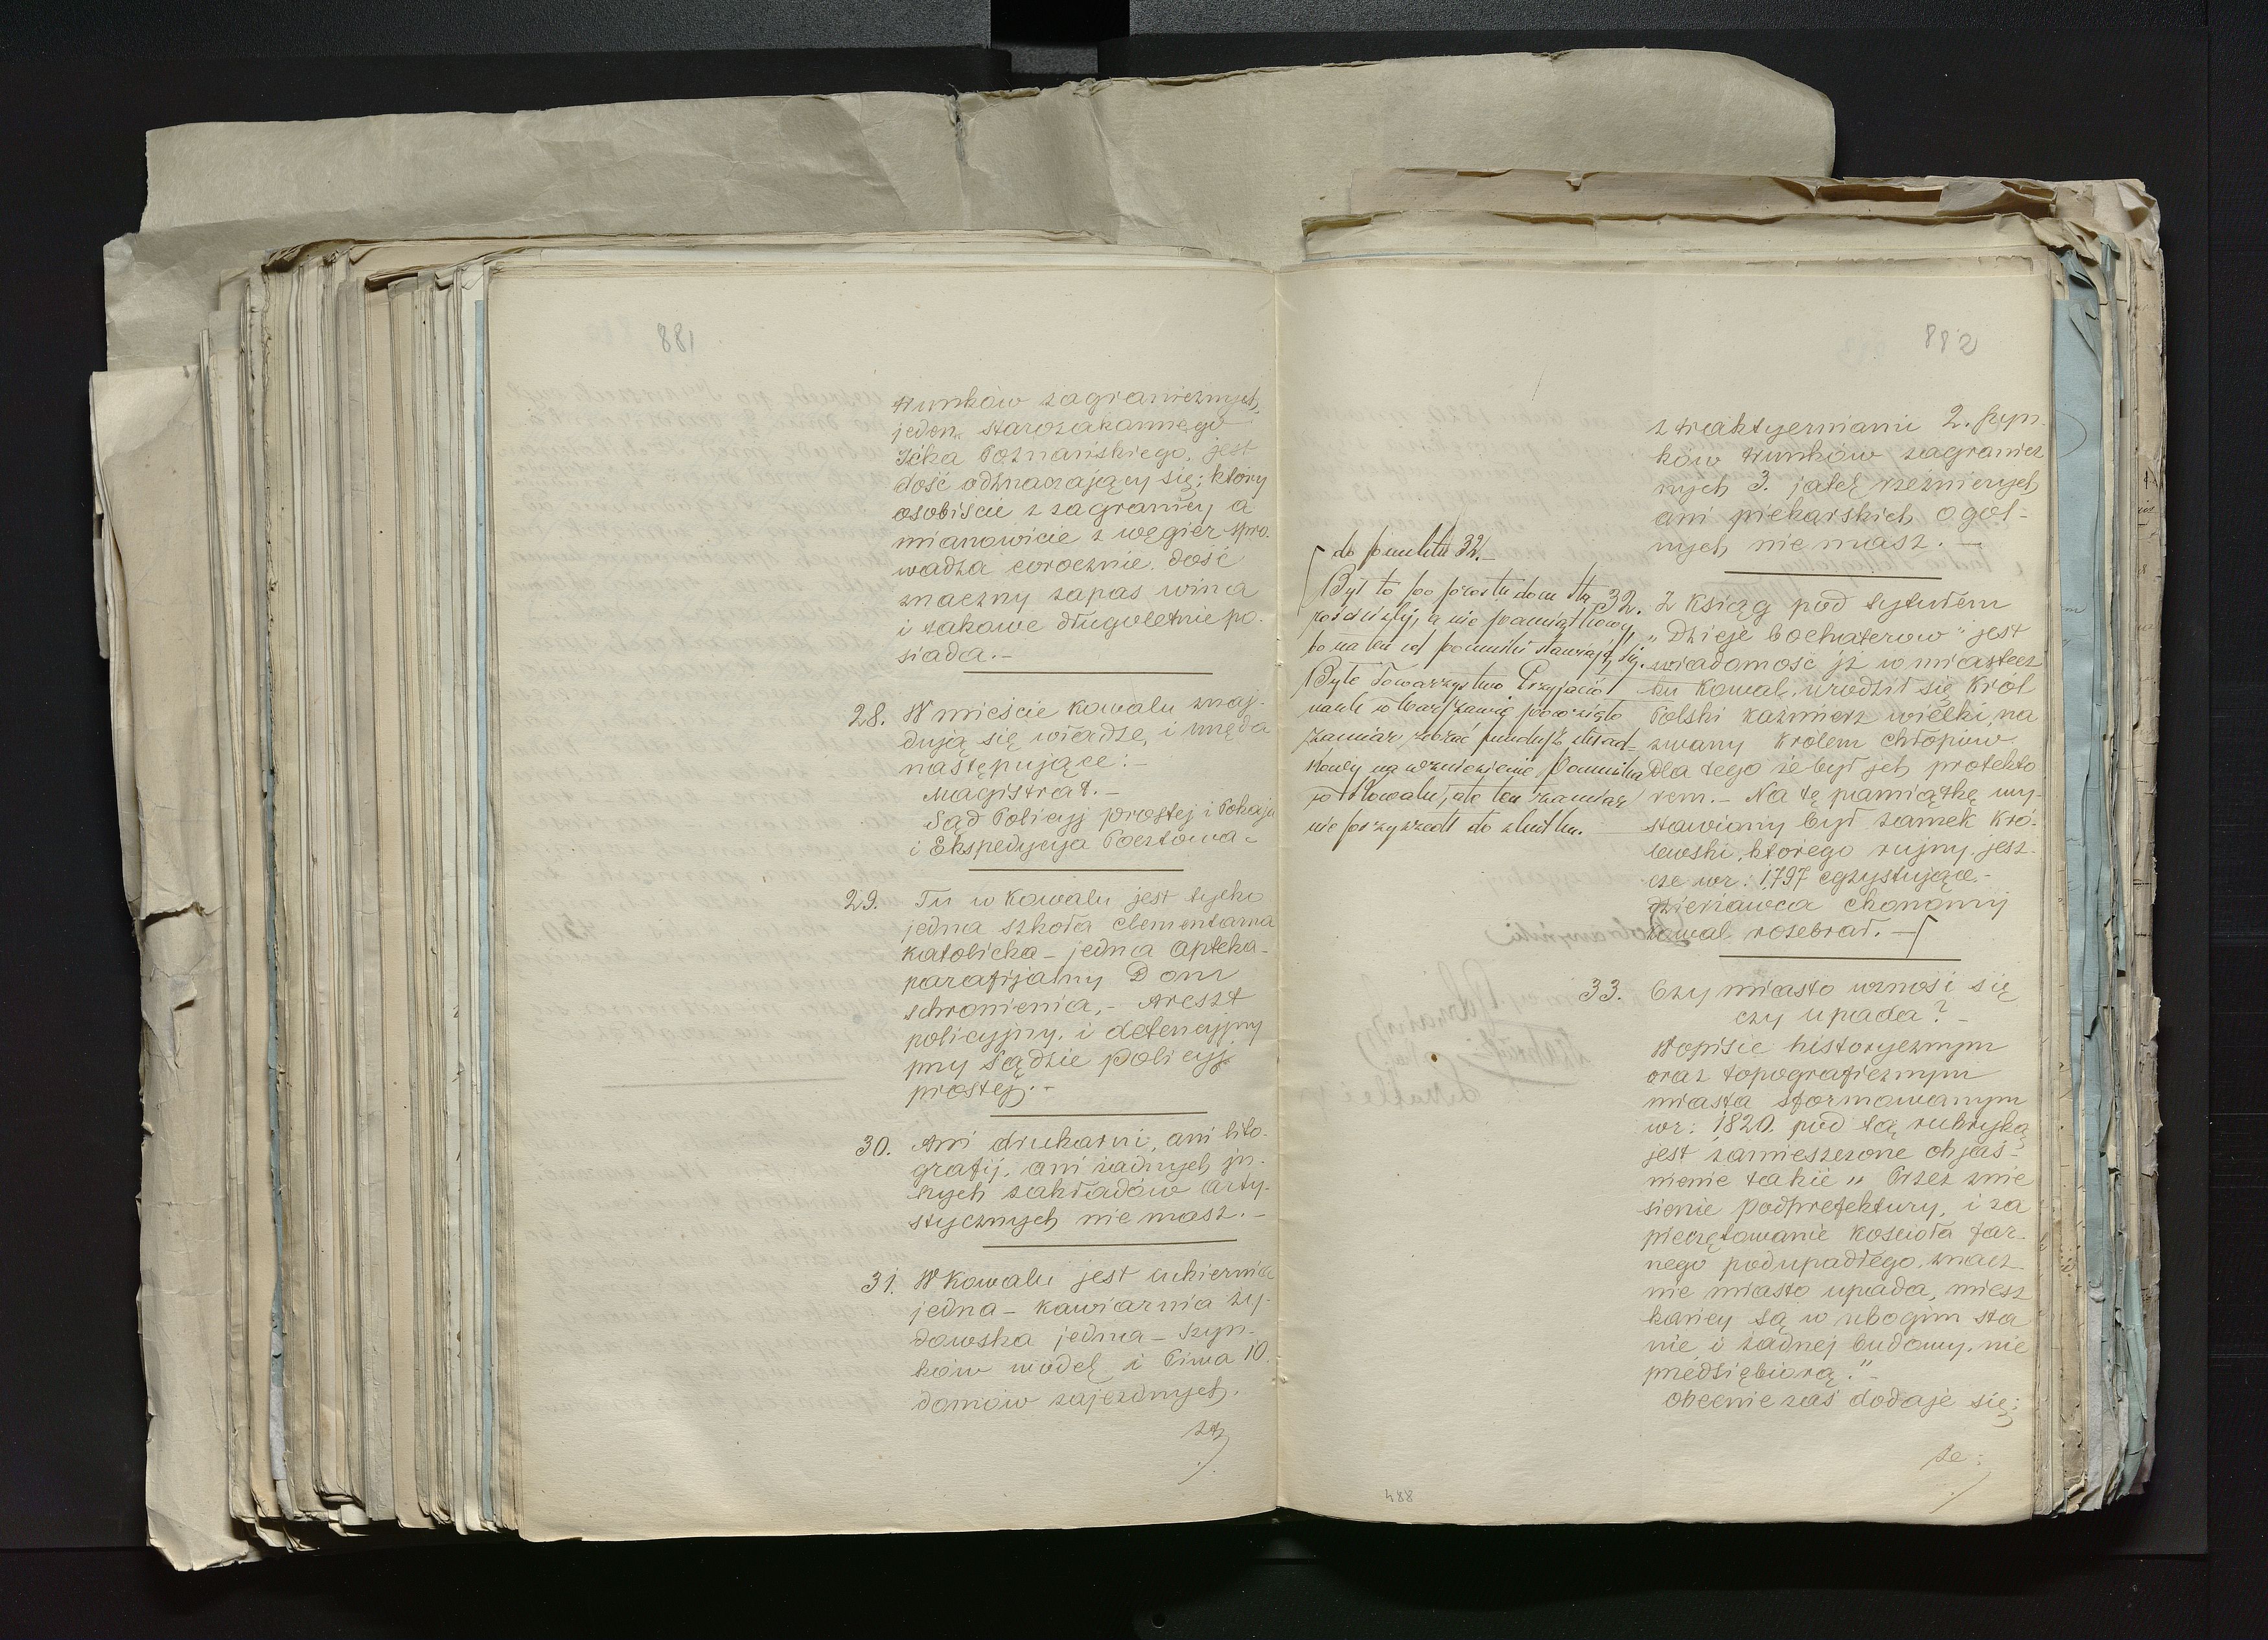 881
trunków zagranicznych,
jeden starozakonnego
Icka Poznańskiego, jest
dość odznaczający się; który
osobiście z zagranicy a
mianowicie z węgier spro-
wadza corocznie dość
znaczny zapas wina
i takowe długoletnie po-
siada.-
28. W mieście Kowalu znaj-
dują się władze, i urzęda
następujące:-
Magistrat.-
Sąd Policyj prostej i Pokoju
i Ekspedycyja Pocztowa-
29. Tu w Kowalu jest tylko
jedna szkoła elementarna
katolicka - jedna apteka-
parafijalny Dom
schronienia,- Areszt
policyjny, i detencyjny
przy Sądzie policyj
prostej.-
30. Ani drukarni, ani lito-
grafij, ani żadnych jn-
szych zakładów arty-
stycznych nie masz.-
31. W Kowalu jest cukiernia
jedna - kawiarnia ży-
dowska jedna - szyn-
ków wódek i Piwa 10.
domów zajezdnych,
882
z traktyerniami 2. szyn-
ków trunków zagranicz
nych 3. jatek rzeźniczych
ani piekarskich ogol-
nych nie masz.-
do punktu 32.-
Był to po prostu dom dla
a nie pamiątkowy
bo na ten cel pomniki stawiają się.
Byłe Towarzystwo Przyjaciół
nauk w Warszawie powzięło
zamiar zebrać fundusz skład-
kowy na wzniesienie Pomnika
w Kowalu, ale ten zamiar
nie przyszedł do skutku.
32. Z ksiąg pod tytułem
"Dzieje Bochaterow" jest
wiadomość jż w miastecz
ku Kowal, urodził się Król
Polski kazmierz wielki, na
zwany Królem chłopów
dla tego że był jch protekto
rem.- Na tę pamiątkę wy-
stawiony był zamek Kró-
lewski, ktorego rujny jesz-
cze wr: 1797 egzystujące.-
dzierżawca ekonomij
kowal, rozebrał.-
33. Czy miasto wznosi się
czy upada?-
W opisie historycznym
oraz topograficznym
miasta sformowanym
wr: 1820. pod tą rubryką
jest zamieszczone objaś-
nienie takie „ Przez znie
sienie podprefektury, i za
pieczętowanie kościoła far-
nego podupadłego, znacz
nie miasto upada, miesz
kańcy są w ubogim sta
nie i żadnej budowy, nie
przedsiębiorą."-
Obecnie zaś dodaje się;
że:
488